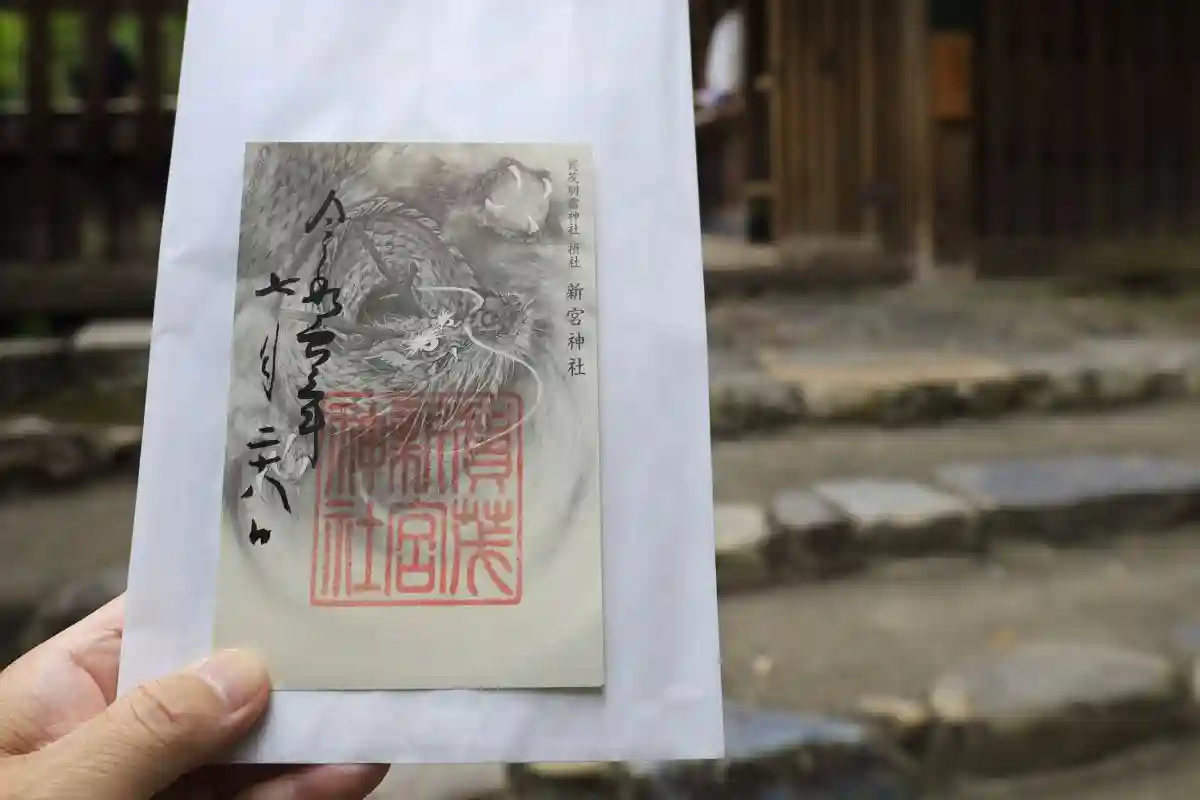 賀茂別雷神社 摂社 新宮神社
令和六年
七月
二十八日
賀茂
新宮
神社